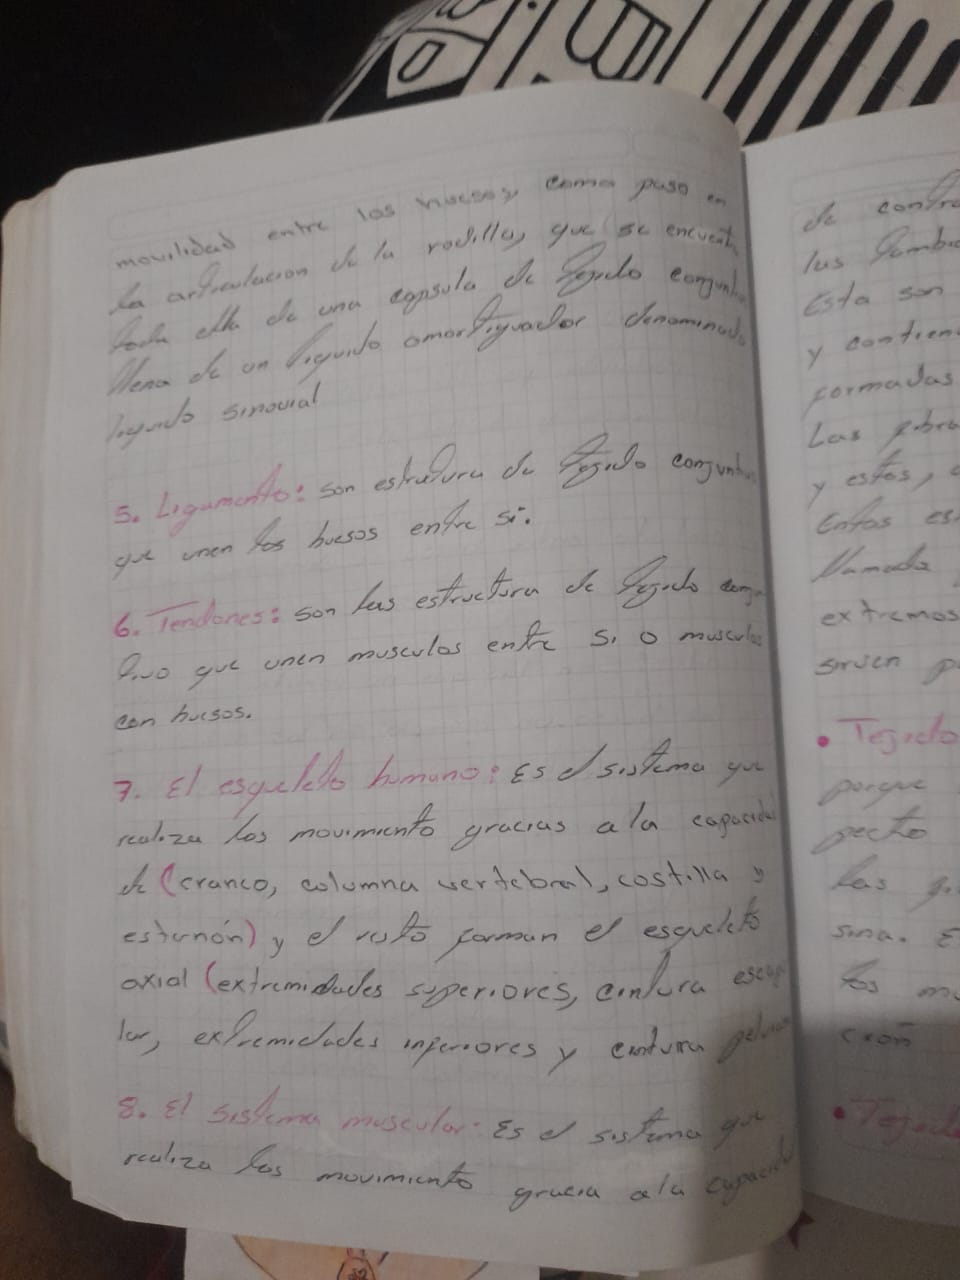 movilidad entre los huesos, como paso en
la articulacion de la rodilla, que se encuent
toda ella de una capsula de Tegido conjunti
llena de un liquido amortiguador denominado
liquido sinovial
5. Ligamento: son estrutura de Tegido conjuntivo
que unen los huesos entre si.
6. Tendones: son las estructura de Tegido conju
tivo que unen musculos entre si o musculos
con huesos.
7. El esqueleto humano: Es el sistema que
realiza los movimiento gracias a la capacidad
de (craneo, columna vertebral, costilla y
esternón) y el resto forman el esqueleto
axial (extremidades superiores, cintura escap
lar, extremidades inferiores y cintura pelvi
8. El sistema muscular: Es el sistema que
realiza los movimiento gracia a la capacidad
de contro
las
Esta son
y contien
formadas
Las fibra
y estos,
Entas es
llamada
extremos
sirven p
• Tegido
porque
pecho
las
sina. E
los mu
cion
• Tegido